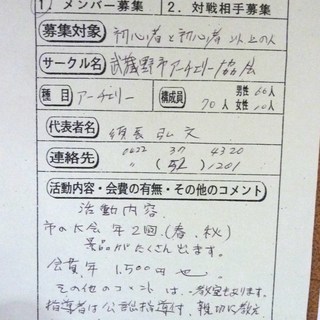 1. メンバー募集 2. 対戦相手募集
募集対象 初心者と初心者以上の人
サークル名 武蔵野市アーチェリー協会
種目 アーチェリー 構成員 70人 男性 60人 女性 10人
代表者名 弘文
連絡先 0422 37 4320
〃 (52) 1201
活動内容・会費の有無・その他のコメント
活動内容
市の大会 年2回(春、秋)
景品がたくさん出ます。
会費年 1,500円也
その他のコメントは、教室もあります。
指導者は公認指導員、親切に教え